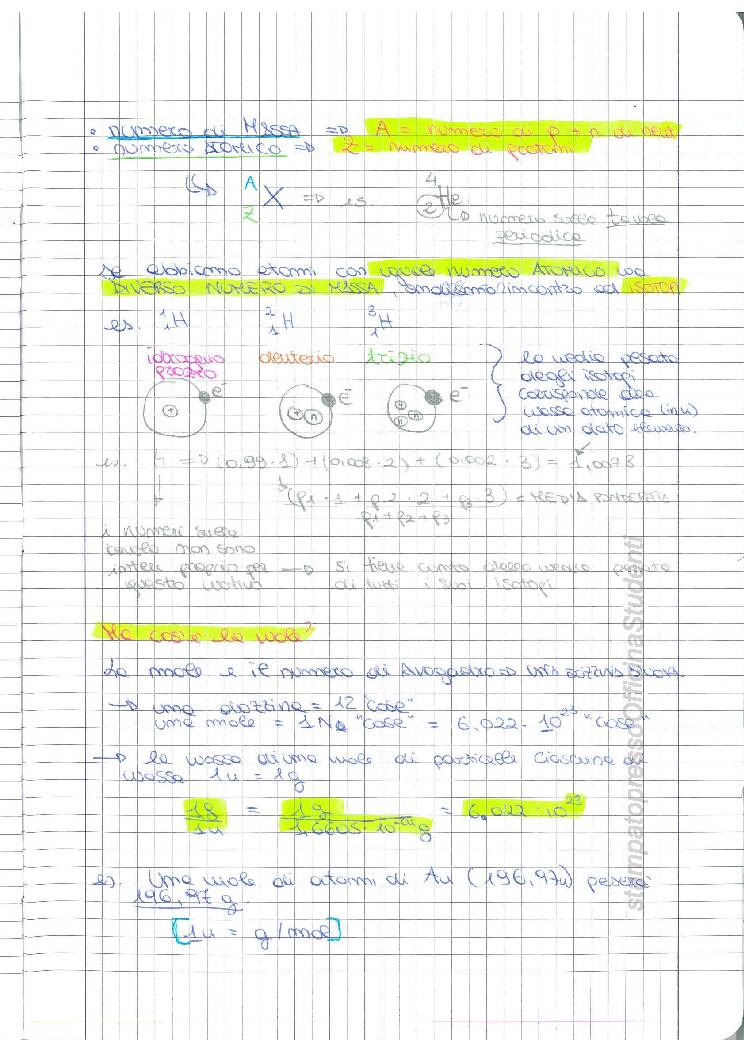 • numero di MASSA => A = numero di p + n di
• numero atomico => Z = numero di protoni
A
Z X => es. 4 2 He
numero sulla tavola
periodica
Se abbiamo atomi con uguale numero ATOMICO ma
DIVERSO NUMERO DI MASSA, andiamo incontro ad ISOTOPI
es. 1 1 H 2 1 H 3 1 H
idrogeno deuterio trizio
prozio
+ e- + n e- + n n e-
la media pesata
degli isotopi
corrisponde alla
massa atomica (in u)
di un dato elemento.
es. H => (0.99 · 1) + (0.008 · 2) + (0.002 · 3) = 1,0078
(p1 · 1 + p2 · 2 + p3 · 3) = MEDIA PONDERATA
p1 + p2 + p3
i numeri sulla
tavola non sono
interi proprio per -> si tiene conto della media pesata
questo motivo di tutti i suoi isotopi
Ma cos'è la mole?
La mole è il numero di Avogadro =>
-> una dozzina = 12 "cose"
una mole = 1 Na "cose" = 6.022 · 10^23 "cose"
-> la massa di una mole di particelle ciascuna di
massa 1u = 1g
1g = 1g = 6,022 · 10^23
1u 1,6605 · 10^-24 g
es. Una mole di atomi di Au (196,97u) peserà
196,97 g.
[1u = g/mol]
stampatopressoOfficinaStudenti